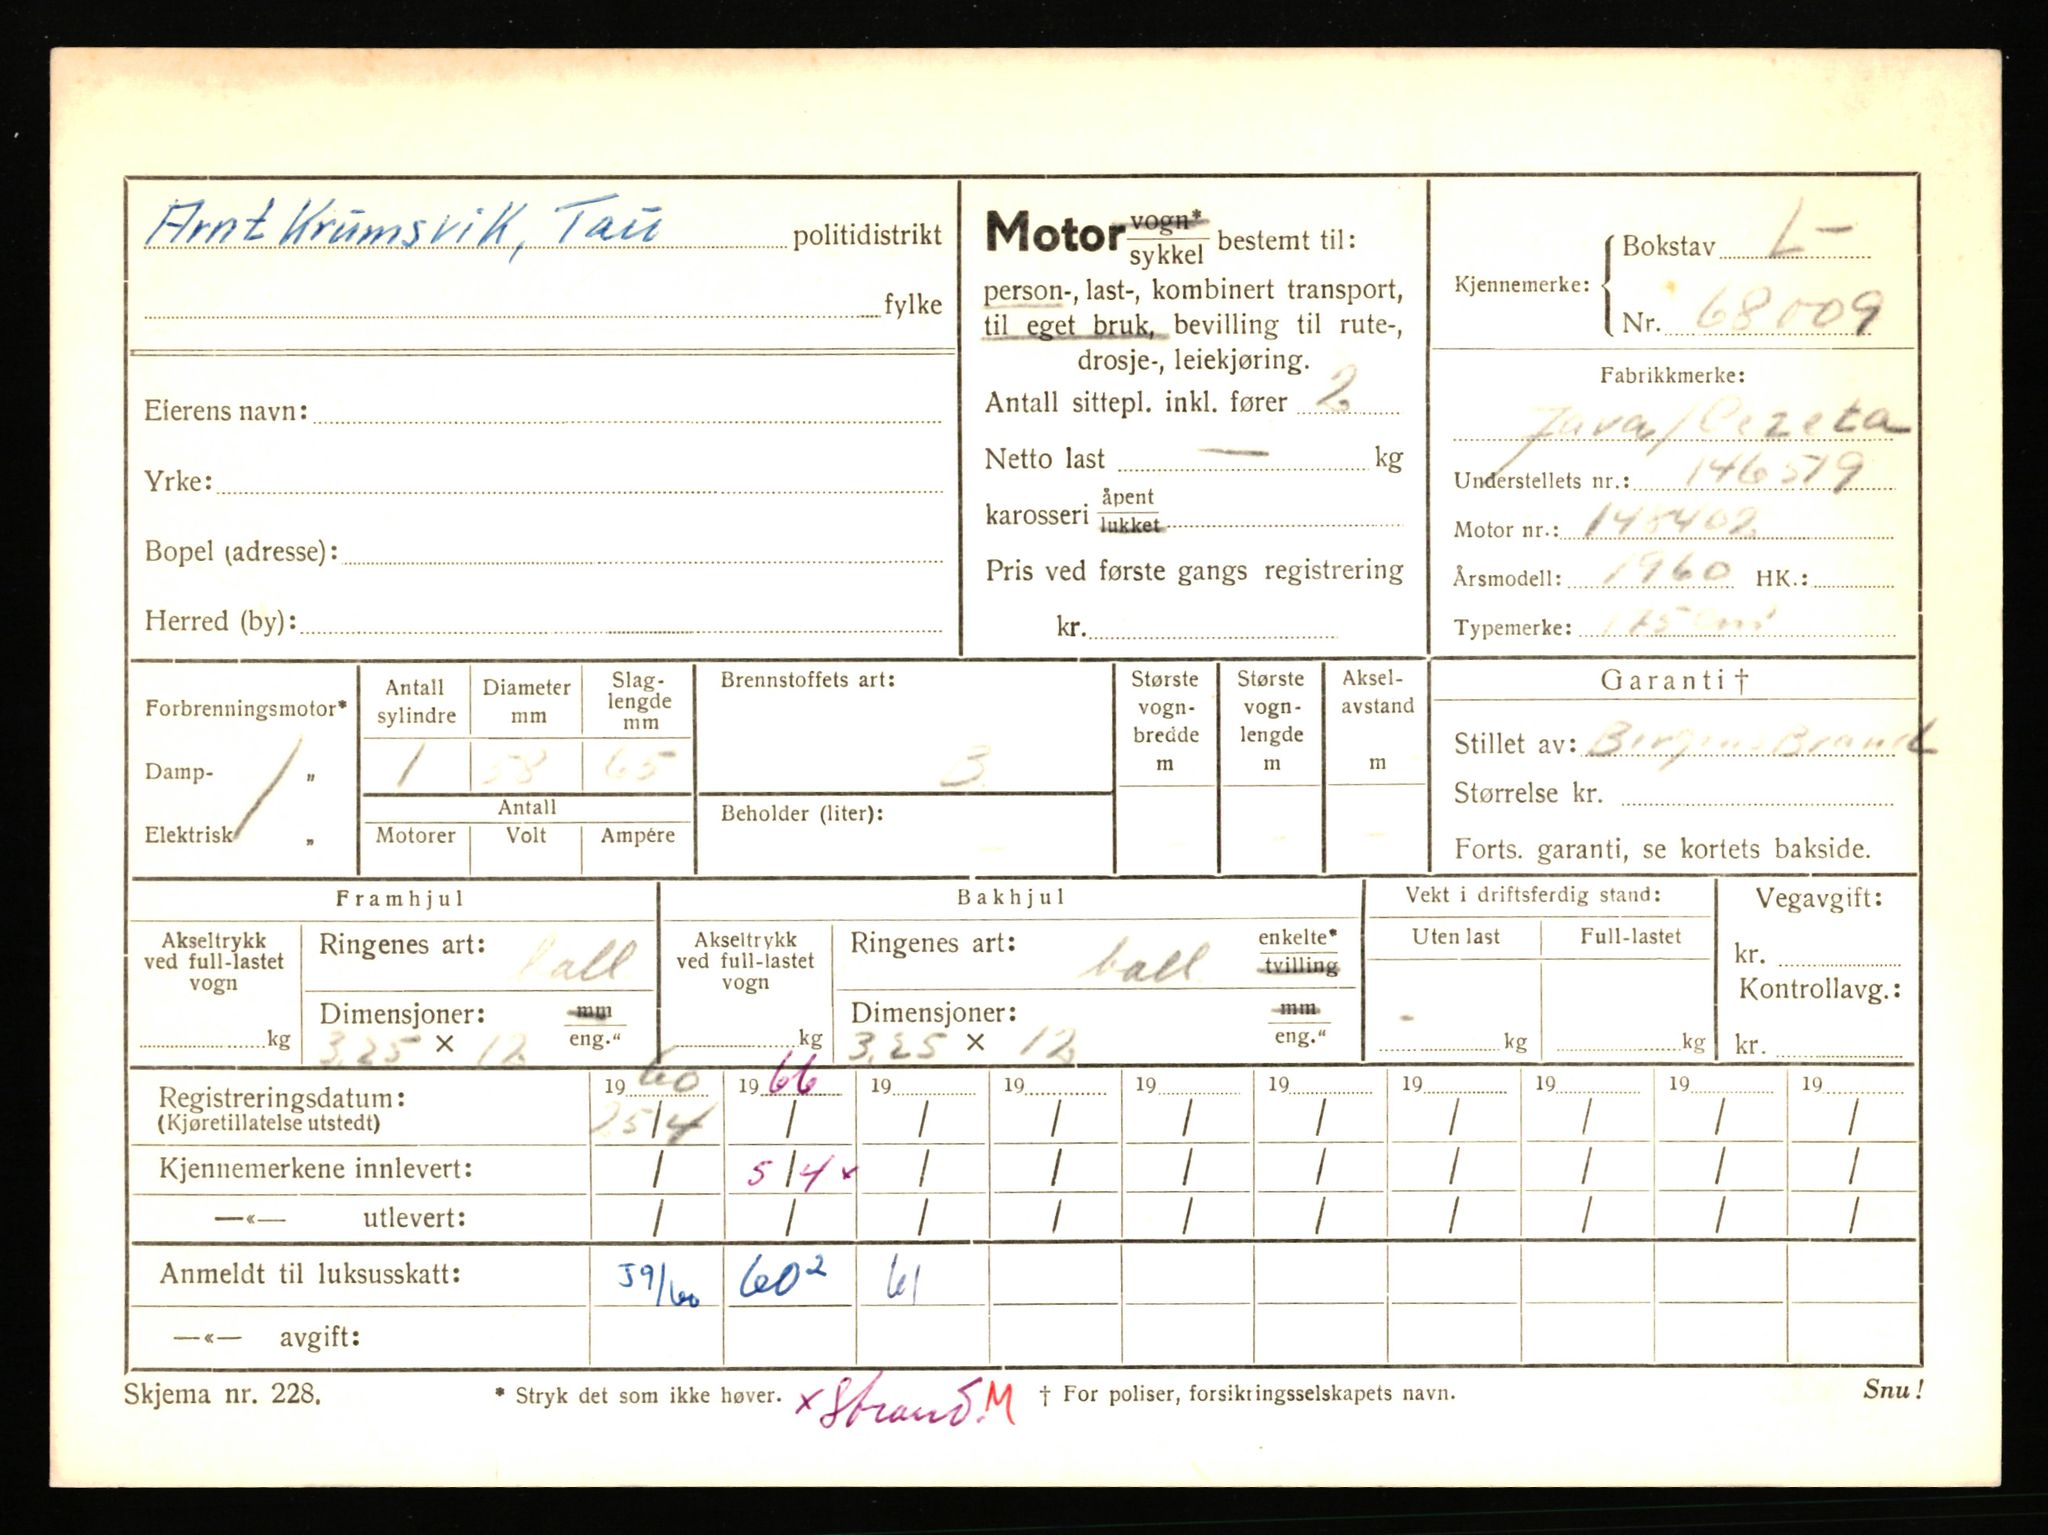 Arnt Krumsvik, Tau politidistrikt
fylke
Eierens navn:
Yrke:
Bopel (adresse):
Herred (by):
Motor vogn* / sykkel bestemt til:
person-, last-, kombinert transport,
til eget bruk, bevilling til rute-,
drosje-, leiekjøring.
Antall sittepl. inkl. fører 2
Netto last — kg
karosseri åpent / lukket
Pris ved første gangs registrering
kr.
Kjennemerke: Bokstav L-
Nr. 68009
Fabrikkmerke:
Java/Cezeta
Understellets nr.: 146519
Motor nr.: 145402
Årsmodell: 1960 HK.:
Typemerke: 175 cm³
Forbrenningsmotor*
Damp- „
Elektrisk „
Antall sylindre
1
Diameter mm
58
Slag-lengde mm
65
Antall
Motorer Volt Ampére
Brennstoffets art:
B
Beholder (liter):
—
Største vogn-bredde m
Største vogn-lengde m
—
Aksel-avstand m
—
Garanti †
Stillet av: Bergens Brand
Størrelse kr.
Forts. garanti, se kortets bakside.
Framhjul
Akseltrykk ved full-lastet vogn
kg
Ringenes art: ball
Dimensjoner: mm / eng."
3,25 × 12
Bakhjul
Akseltrykk ved full-lastet vogn
kg
Ringenes art: ball enkelte* / tvilling
Dimensjoner: mm / eng."
3,25 × 12
Vekt i driftsferdig stand:
Uten last Full-lastet
-
kg kg
Vegavgift:
kr.
Kontrollavg.:
kr.
Registreringsdatum: 1960 1966 19 19 19 19 19 19 19 19
(Kjøretillatelse utstedt) 25/4 / / / / / / / / /
Kjennemerkene innlevert: / 5/4 x / / / / / / / /
—«— utlevert: / / / / / / / / / /
Anmeldt til luksusskatt: J9/60 60² 61
—«— avgift:
Skjema nr. 228. * Stryk det som ikke høver. x Strand. M † For poliser, forsikringsselskapets navn. Snu!